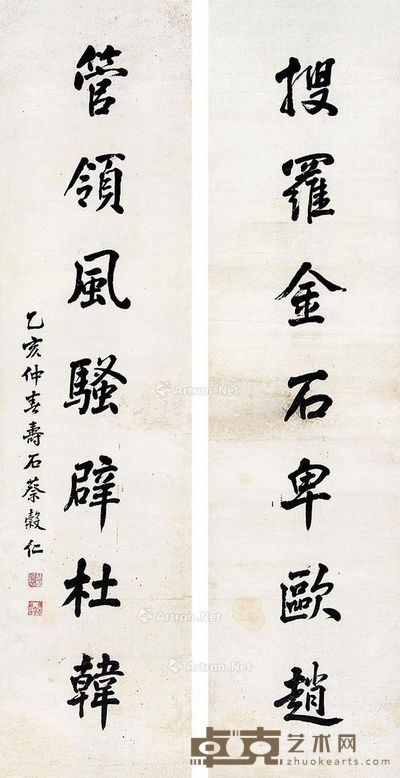 搜羅金石卑歐趙
管領風騷辟杜韓
乙亥仲春壽石蔡穀仁
Artron.Net
Artron.Net
Artron.Net
Artron.Net
卓克艺术网
zhuokearts.com